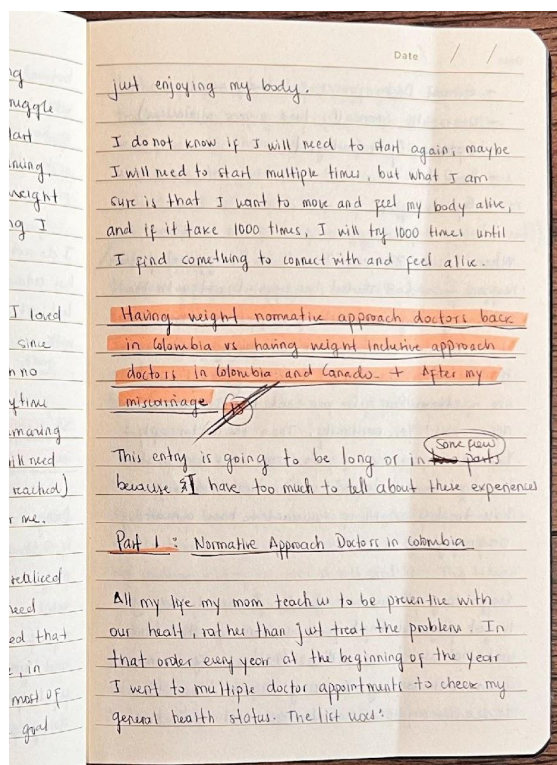 ng
ruggle
tart
ning,
weight
ng I
I loved
since
n no
y time
amazing
ill need
reached)
r me.
realiced
need
ed that
e, in
most of
goal
Date / /
just enjoying my body.
I do not know if I will need to start again, maybe
I will need to start multiple times, but what I am
sure is that I want to move and feel my body alive,
and if it take 1000 times, I will try 1000 times until
I find something to connect with and feel alive.
Having weight normative approach doctors back
in Colombia vs having weight inclusive approach
doctors in Colombia and Canada. + After my
miscarriage
This entry is going to be long or in some few parts
because I have too much to tell about these experiences
Part 1: Normative Approach Doctors in Colombia
All my life my mom teach us to be preventive with
our healt, rather than just treat the problem. In
that order every year at the beginning of the year
I went to multiple doctor appointments to check my
general health status. The list was: